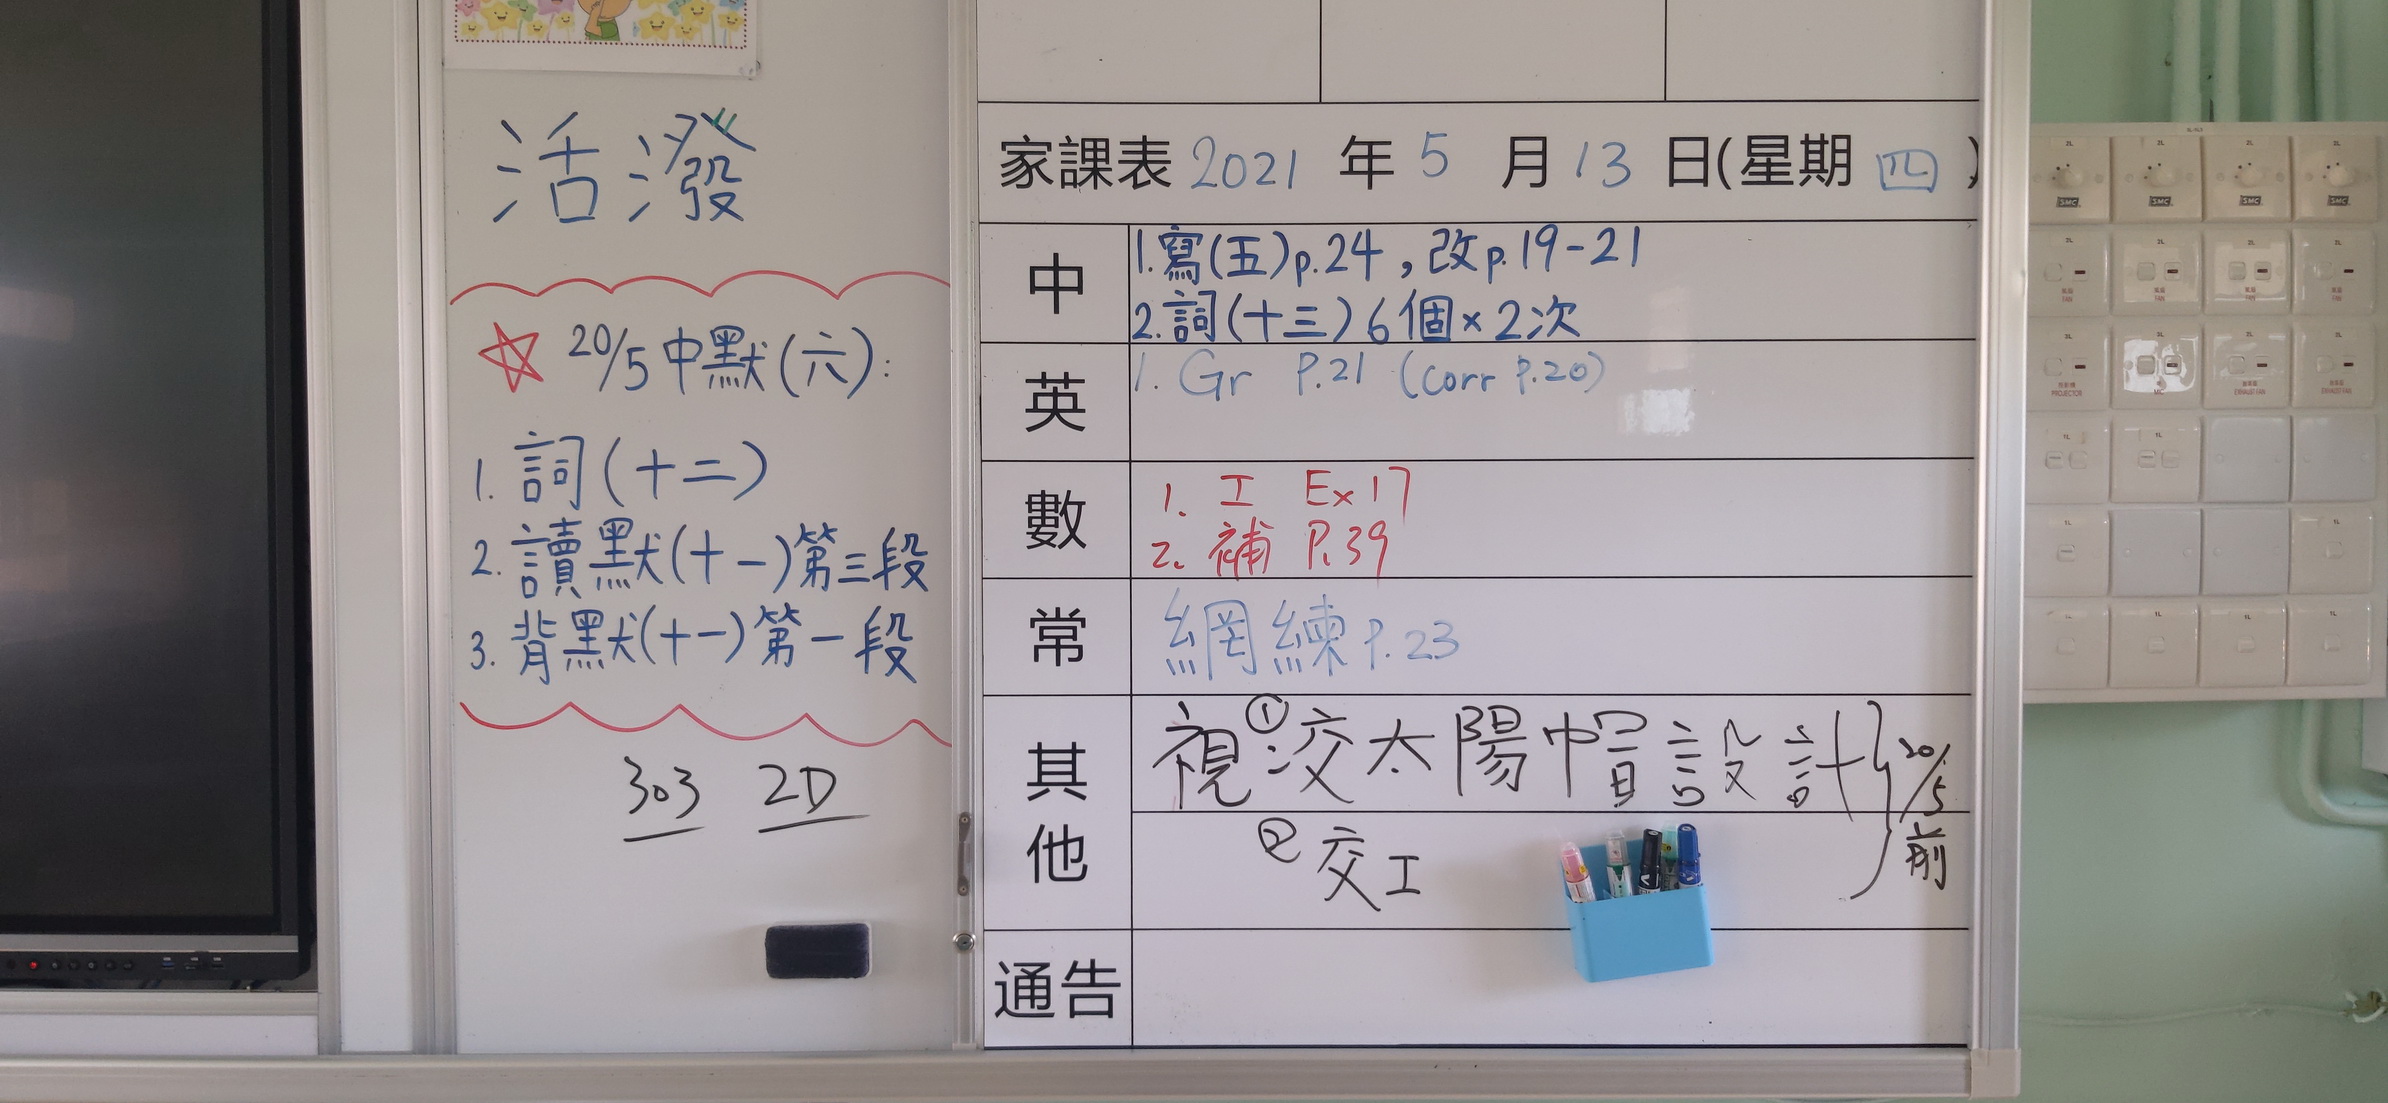 活潑
20/5 中默(六):
1. 詞(十二)
2. 讀默(十一)第三段
3. 背默(十一)第一段
303 2D
家課表 2021 年 5 月 13 日(星期 四 )
中
1. 寫(五)p.24 , 改p.19-21
2. 詞(十三)6個×2次
英
1. Gr P.21 (Corr P.20)
數
1. 工 Ex 17
2. 補 P.39
常
網練 P.23
其他
視 ①交太陽帽設計 } 20/5前
②交工
通告
SMC SMC SMC SMC
風扇 FAN
風扇 FAN
風扇 FAN
風扇 FAN
PROJECTOR
MIC
EXHAUST FAN
EXHAUST FAN